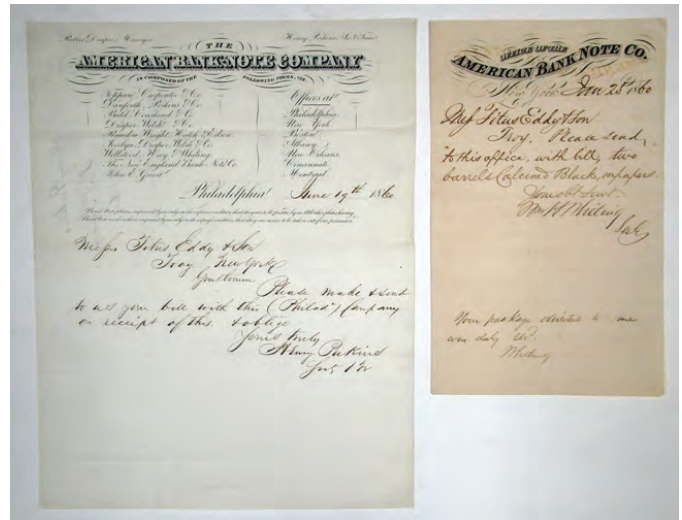 Robert Draper, Manager
Henry Perkins, Sec'y & Treas.
THE
AMERICAN BANK NOTE COMPANY
IS COMPOSED OF THE FOLLOWING FIRMS, VIZ
Toppan, Carpenter & Co.
Danforth, Perkins & Co.
Bald, Cousland & Co.
Draper, Welsh & Co.
Rawdon, Wright, Hatch & Edson.
Jocelyn, Draper, Welsh & Co.
Wellstood, Hay & Whiting.
The New England Bank Note Co.
John E. Gavit.
Offices at
Philadelphia.
New York.
Boston.
Albany.
New Orleans.
Cincinnati.
Montreal.
Philadelphia June 19th 1860
Messrs Titus Eddy & Son
Troy New York
Gentlemen
Please make & send
to us your bill with this (Philada) Company
on receipt of this & oblige
Yours truly
Henry Perkins
OFFICE OF THE
AMERICAN BANK NOTE CO.
New York 28 1860
Mess Titus Eddy & Son
Troy. Please send
to this office, with bill, two
barrels Calcined Black, on papers.
Your Obt Servt.
Wm H Whiting
Secy
Your package directed to me
was duly
Whiting